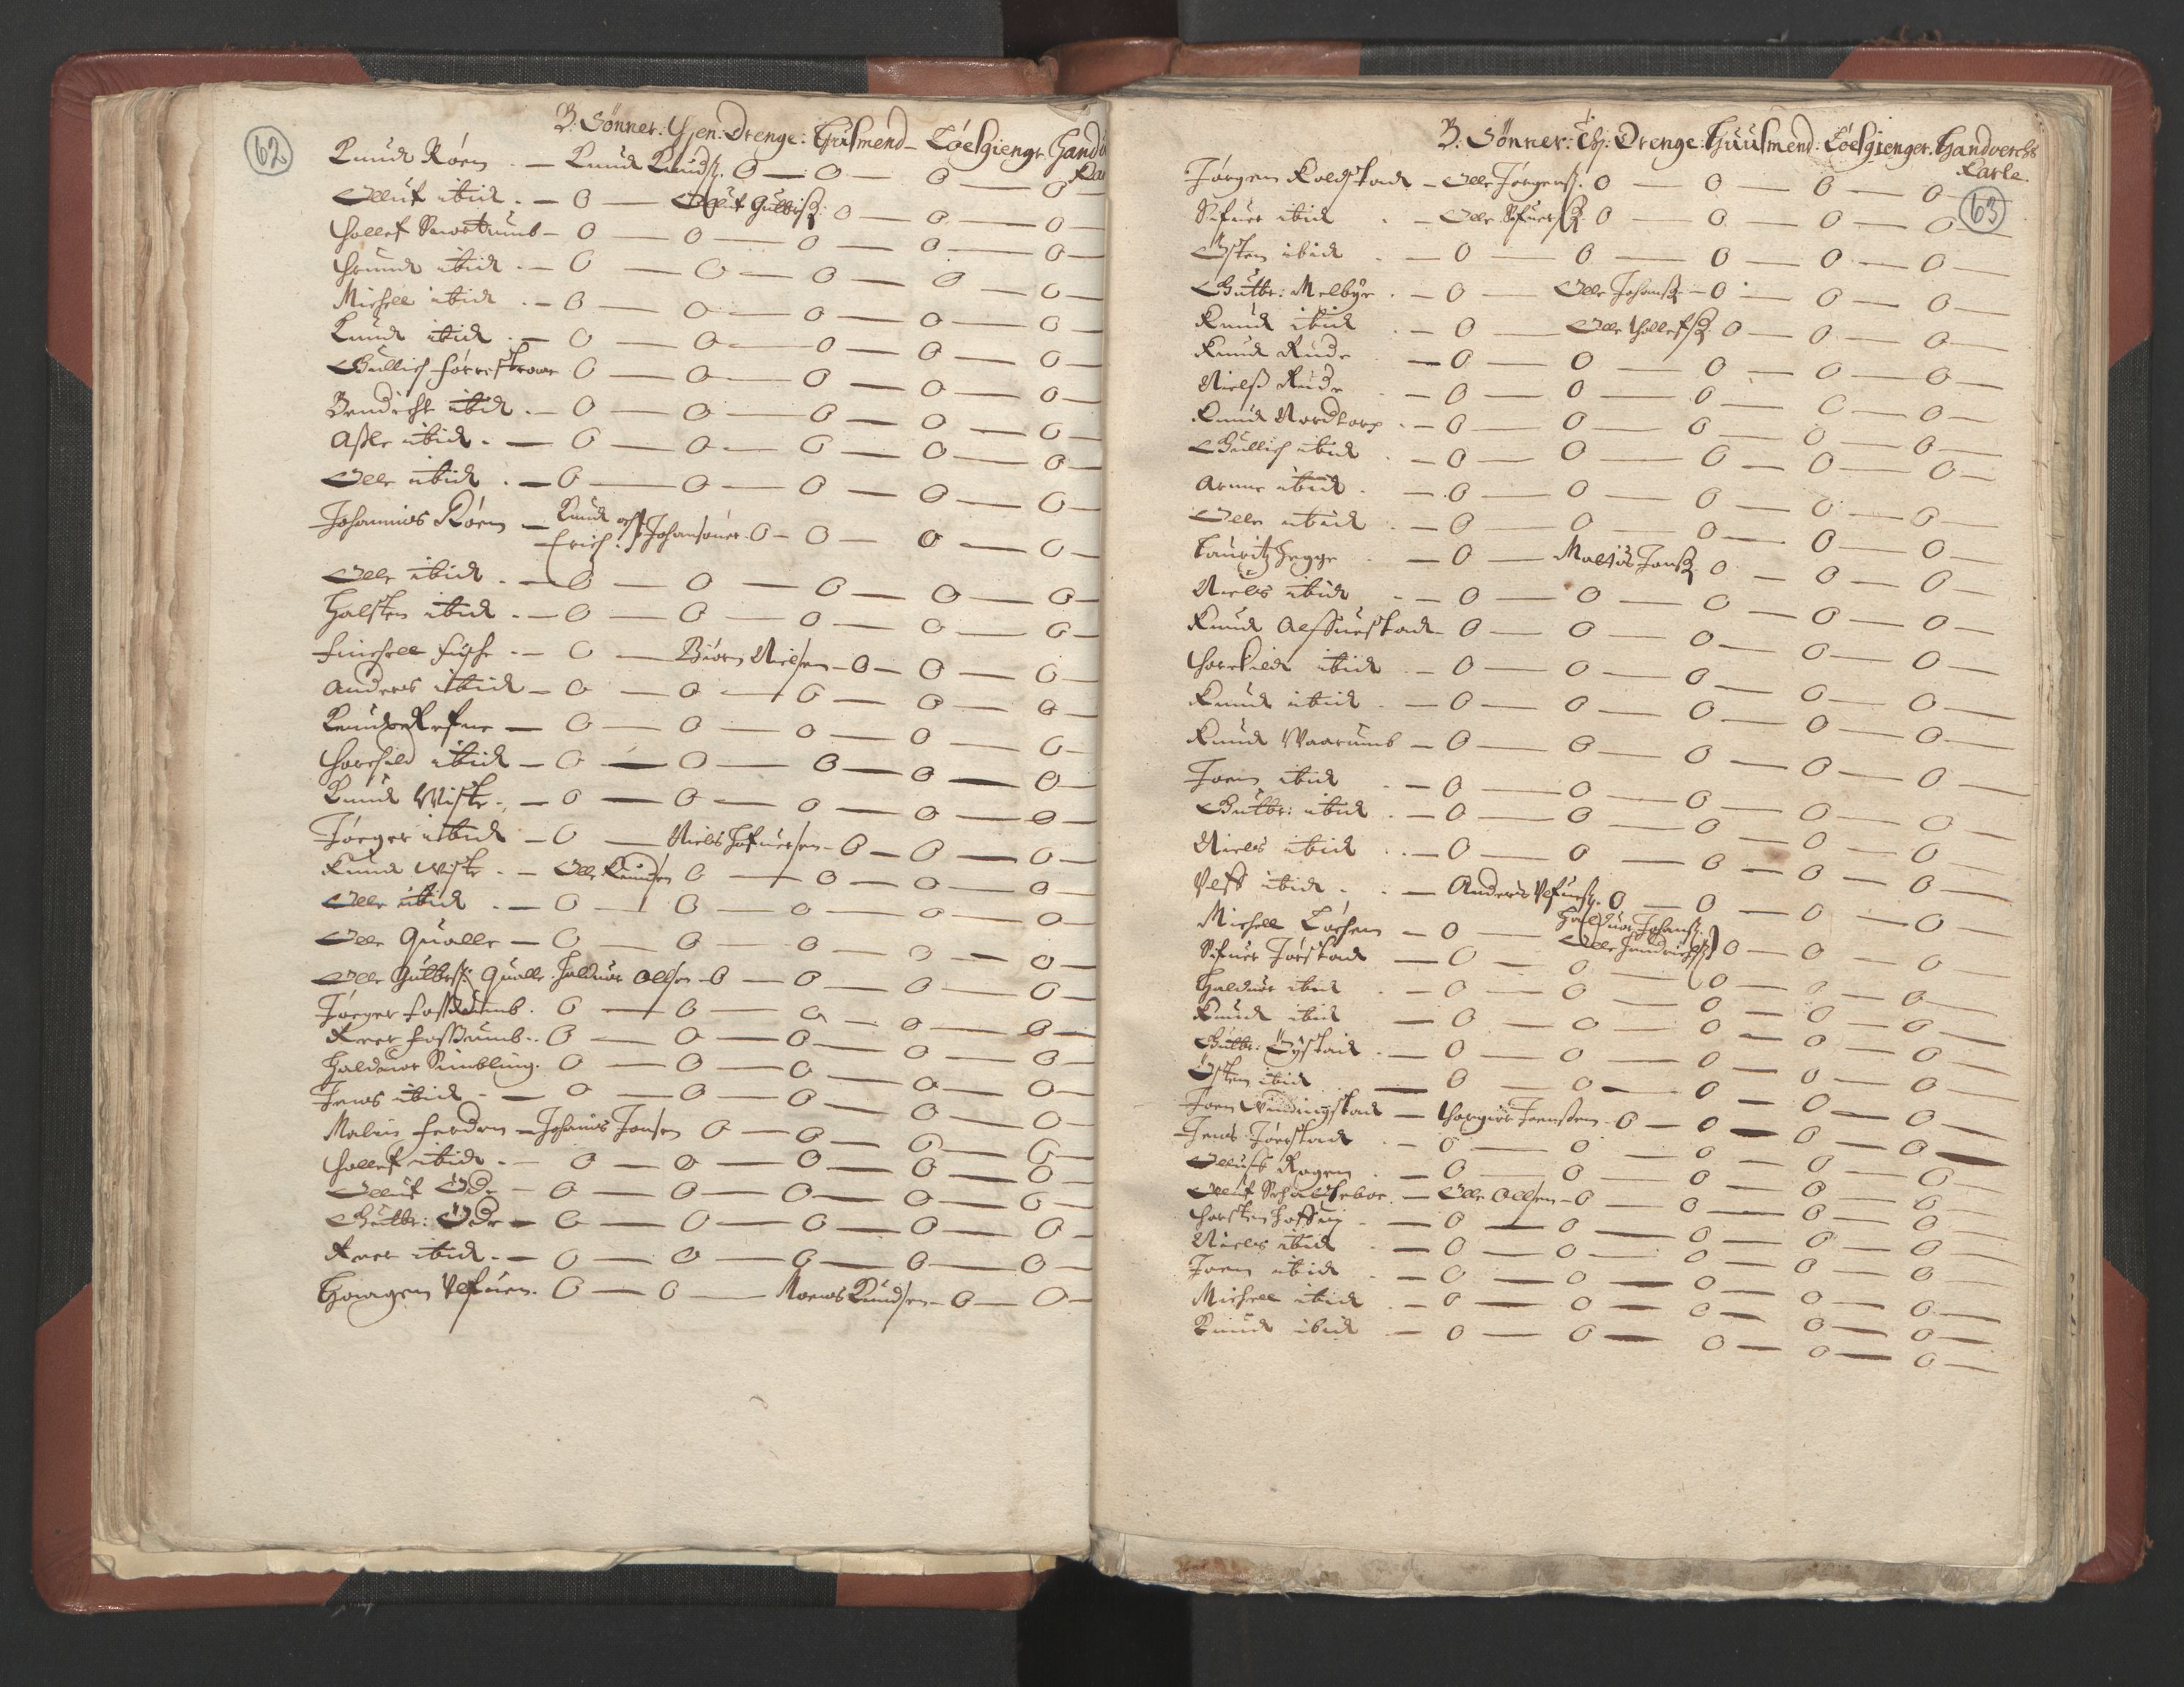 62
B: Sönner: Thien: Drenge: Huusmend - Löesgienger Handv
Kar
Knud Röen . - Knud Knudß. 0 - 0 - 0 - 0
Olluf ibid . - 0 - Olluf Gulbrß: 0 - 0 - 0 -
Thollef - 0 - 0 - 0 - 0 - 0 -
ibid . - 0 - 0 - 0 - 0 - 0 -
Michell ibid . - 0 - 0 - 0 - 0 - 0 -
Knud ibid . - 0 - 0 - 0 - 0 - 0 -
Gullich 0 - 0 - 0 - 0 - 0 -
Bendicht ibid . - 0 - 0 - 0 - 0 - 0 -
Aßle ibid . - 0 - 0 - 0 - 0 - 0 -
Olle ibid . - 0 - 0 - 0 - 0 - 0 -
Johannis Röen - Knud och
Erich Johansöner 0 - 0 - 0 - 0 -
Olle ibid . - 0 - 0 - 0 - 0 - 0 -
Halsten ibid . - 0 - 0 - 0 - 0 - 0 -
- 0 - Biörn Nielsen - 0 - 0 - 0 -
Anders ibid - 0 - 0 - 0 - 0 - 0 -
Knud - 0 - 0 - 0 - 0 - 0 -
Thorchild ibid - 0 - 0 - 0 - 0 - 0 -
Knud Wiste . - 0 - 0 - 0 - 0 - 0 -
Törger ibid - 0 - Niels - 0 - 0 - 0 -
Knud Wiste . - Olle Knudsen 0 - 0 - 0 - 0 -
Olle ibid . - 0 - 0 - 0 - 0 - 0 -
Olle Qualle - 0 - 0 - 0 - 0 - 0 -
Olle Gulbrß: Qualle Halduor Ollsen - 0 - 0 - 0 - 0 -
Törger Foßumb . 0 - 0 - 0 - 0 - 0 -
Foßumb . 0 - 0 - 0 - 0 - 0 -
Halduor 0 - 0 - 0 - 0 - 0 -
Jens ibid - 0 - 0 - 0 - 0 - 0 -
- Johanis Jonsen 0 - 0 - 0 - 0 -
Thollef ibid . - 0 - 0 - 0 - 0 - 0 -
Olluf Öde - 0 - 0 - 0 - 0 - 0 -
Gulbr: Öde - 0 - 0 - 0 - 0 - 0 -
ibid . - 0 - 0 - 0 - 0 - 0 -
Haagen . 0 - 0 - Knudsen - 0 - 0 -
B: Sönner: Th: Drenge: Huusmend: Löesgienger. Handverchs
Karle.
63
Jörgen - Olle Jörgenß. 0 - 0 - 0 - 0
Sifuer ibid . - Olle Sifuerß 0 - 0 - 0 - 0 -
Östen ibid . - 0 - 0 - 0 - 0 - 0 -
Gulbr: Melbye . - 0 - Olle Johanß - 0 - 0 - 0 -
Knud ibid . - 0 - Olle Thollefß 0 - 0 - 0 -
Knud Rude - 0 - 0 - 0 - 0 - 0 -
Nielß Rude . - 0 - 0 - 0 - 0 - 0 -
Knud Nordtorp . - 0 - 0 - 0 - 0 - 0 -
Gullich ibid . - 0 - 0 - 0 - 0 - 0 -
Arnne ibid . - 0 - 0 - 0 - 0 - 0 -
Olle ibid . - 0 - 0 - 0 - 0 - 0 -
Lauritz Hegge . - 0 - Jonß 0 - 0 - 0 -
Niels ibid . - 0 - 0 - 0 - 0 - 0 -
Knud - 0 - 0 - 0 - 0 - 0 -
Thorkild ibid . - 0 - 0 - 0 - 0 - 0 -
Knud ibid . - 0 - 0 - 0 - 0 - 0 -
Knud Waarumb - 0 - 0 - 0 - 0 - 0 -
Joen ibid . - 0 - 0 - 0 - 0 - 0 -
Gulbr: ibid . - 0 - 0 - 0 - 0 - 0 -
Niels ibid . - 0 - 0 - 0 - 0 - 0 -
Ulff ibid . - Anders 0 - 0 - 0 - 0 -
Halduor Johanß.
Michell - 0 - Olle Hendrichß 0 - 0 - 0 -
Sifuer Jorstad - 0 - 0 - 0 - 0 - 0 -
Halduor ibid . - 0 - 0 - 0 - 0 - 0 -
Knud ibid - 0 - 0 - 0 - 0 - 0 -
Gulbr: Öystad . - 0 - 0 - 0 - 0 - 0 -
Östen ibid - 0 - 0 - 0 - 0 - 0 -
Joen - Thorgier Joenßen - 0 - 0 - 0 - 0 -
Jens Jorstad . - 0 - 0 - 0 - 0 - 0 -
Olluff Rogen . - 0 - 0 - 0 - 0 - 0 -
Olluf . - Olle Ollsen - 0 - 0 - 0 - 0 -
Thorsten - 0 - 0 - 0 - 0 - 0 -
Niels ibid . - 0 - 0 - 0 - 0 - 0 -
Joen ibid . - 0 - 0 - 0 - 0 - 0 -
Michell ibid . - 0 - 0 - 0 - 0 - 0 -
Knud ibid - 0 - 0 - 0 - 0 - 0 -